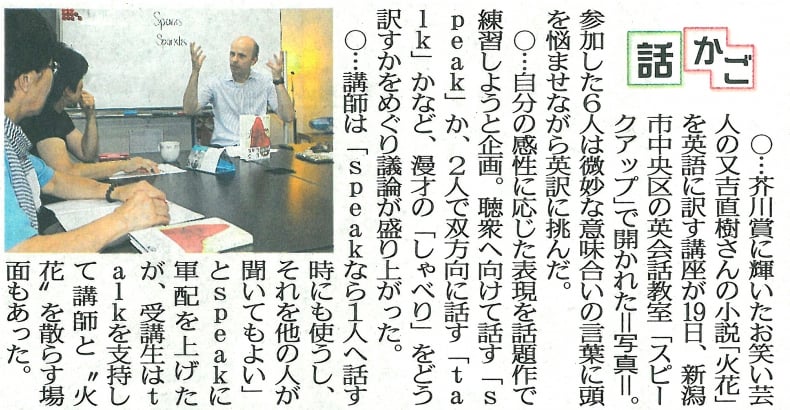 話かご
○…芥川賞に輝いたお笑い芸
人の又吉直樹さんの小説「火花」
を英語に訳す講座が19日、新潟
市中央区の英会話教室「スピー
クアップ」で開かれた＝写真＝。
参加した6人は微妙な意味合いの言葉に頭
を悩ませながら英訳に挑んだ。
○…自分の感性に応じた表現を話題作で
練習しようと企画。聴衆へ向けて話す「s
peak」か、2人で双方向に話す「ta
lk」かなど、漫才の「しゃべり」をどう
訳すかをめぐり議論が盛り上がった。
○…講師は「speakなら1人へ話す
時にも使うし、
それを他の人が
聞いてもよい」
とspeakに
軍配を上げた
が、受講生はt
alkを支持し
て講師と〝火
花〟を散らす場
面もあった。
Spants
Sparks